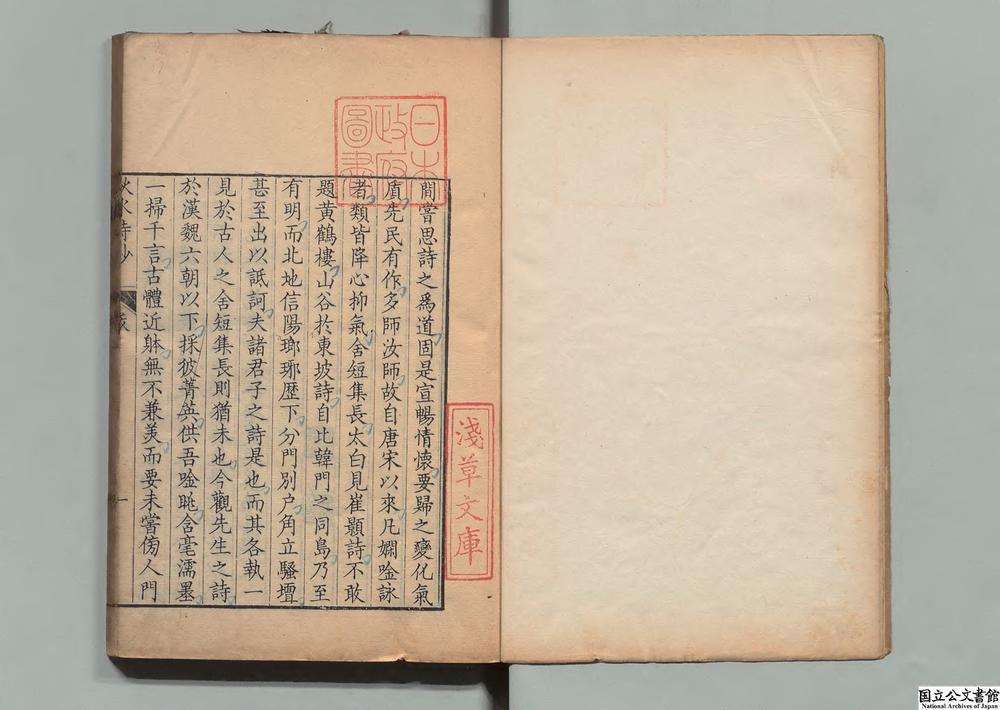 間嘗思詩之爲道固是宣暢情懷要歸之變化氣
質先民有作多師汝師故自唐宋以來凡嫻唫詠
者類皆降心抑氣舍短集長太白見崔顥詩不敢
題黃鶴樓山谷於東坡詩自比韓門之同島乃至
有明而北地信陽瑯琊歷下分門別户角立騷壇
甚至出以詆訶夫諸君子之詩是也而其各執一
見於古人之舍短集長則猶未也今觀先生之詩
於漢魏六朝以下採彼菁英供吾唫眺含毫濡墨
一掃千言古體近躰無不兼美而要未嘗傍人門
一
日本
政府
圖書
淺草文庫
国立公文書館
National Archives of Japan